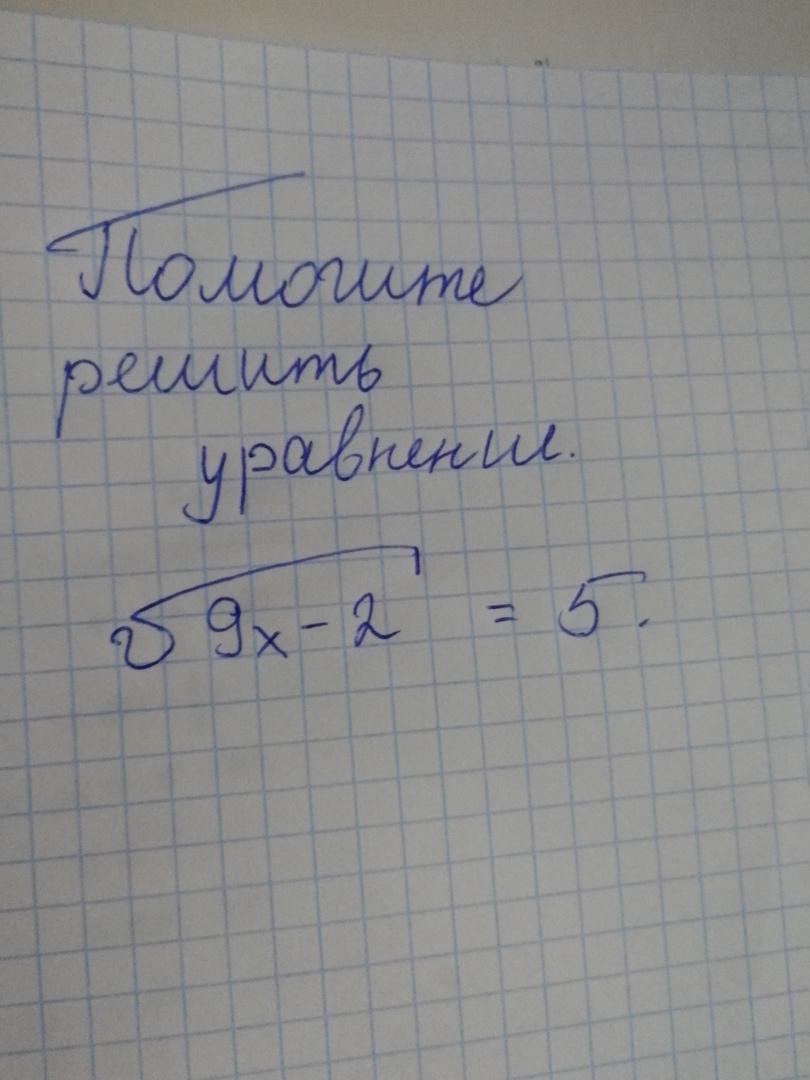 Помогите
решить
уравнение.
√9x-2 = 5.